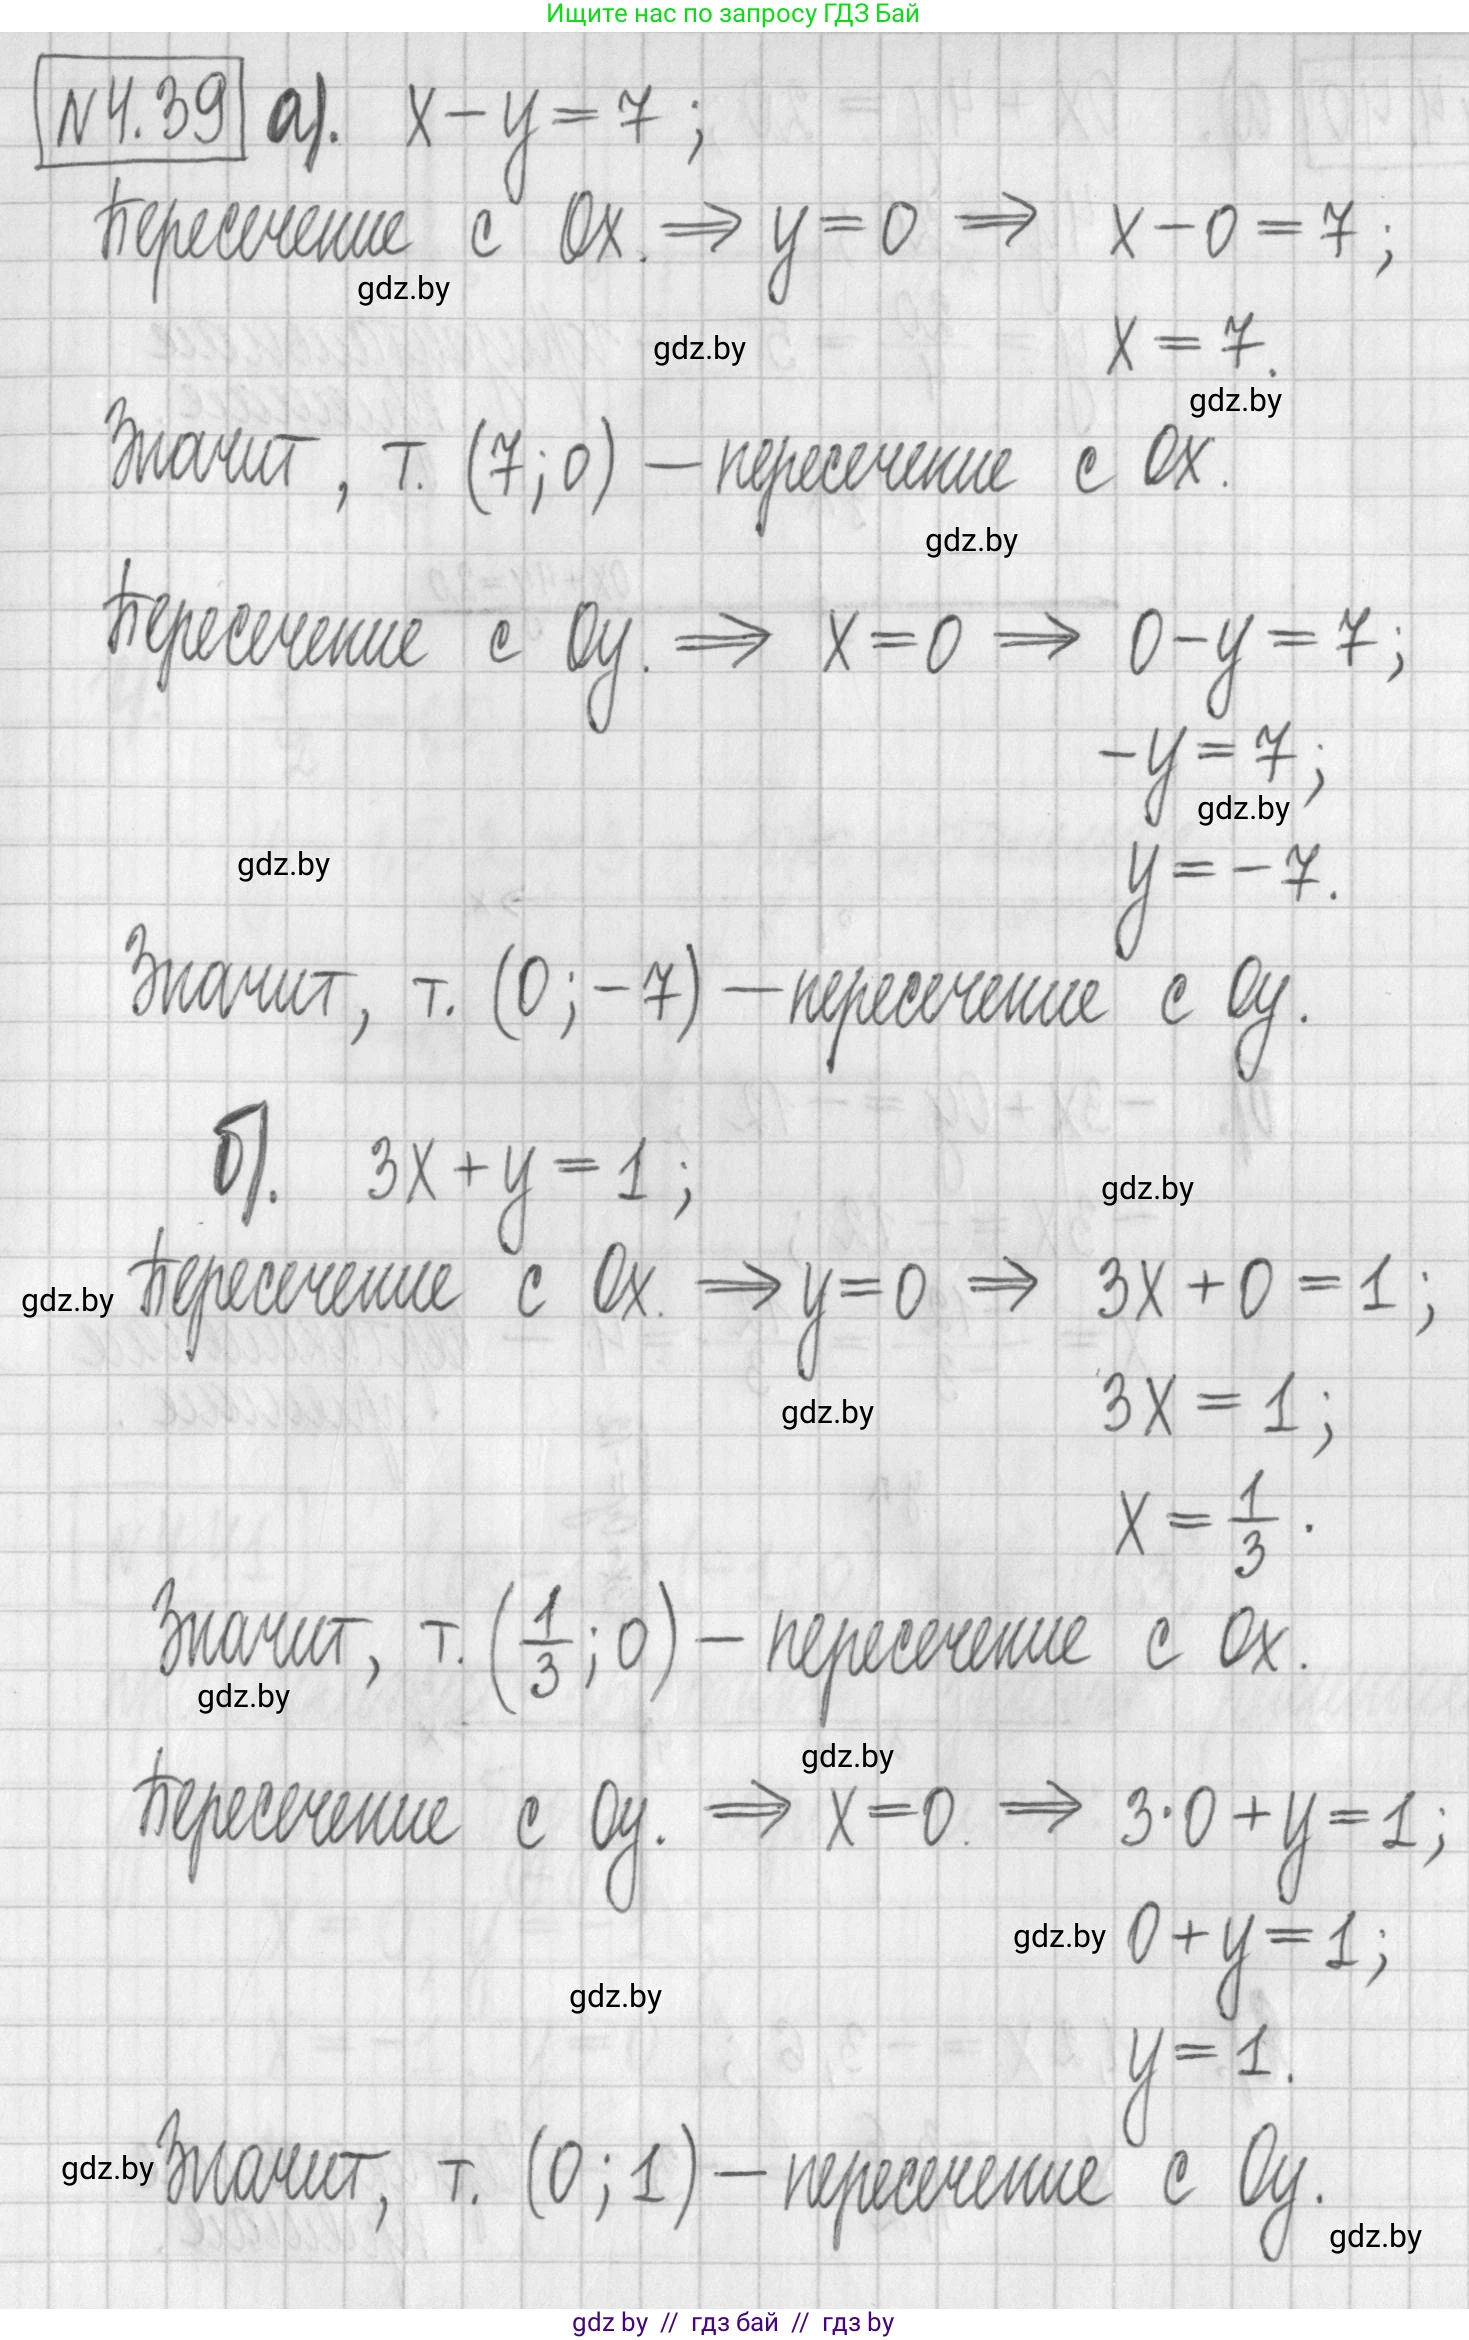 Ищите нас по запросу ГДЗ Бай
№4.39 а). x − y = 7 ;
Пересечение с Ox. ⇒ y = 0 ⇒ x − 0 = 7 ;
gdz.by
x = 7.
gdz.by
gdz.by
Значит, т. (7; 0) — пересечение с Ox.
gdz.by
Пересечение с Oy. ⇒ x = 0 ⇒ 0 − y = 7;
−y = 7 ;
gdz.by
gdz.by
y = −7.
Значит, т. (0; −7) — пересечение с Oy.
б). 3x + y = 1 ;
gdz.by
gdz.by Пересечение с Ox. ⇒ y = 0 ⇒ 3x + 0 = 1 ;
gdz.by 3x = 1 ;
x = 1/3 .
Значит, т. (1/3; 0) — пересечение с Ox.
gdz.by
gdz.by
Пересечение с Oy. ⇒ x = 0. ⇒ 3·0 + y = 1;
gdz.by 0 + y = 1;
gdz.by
y = 1.
gdz.by Значит, т. (0; 1) — пересечение с Oy.
gdz.by
gdz by // гдз бай // гдз by